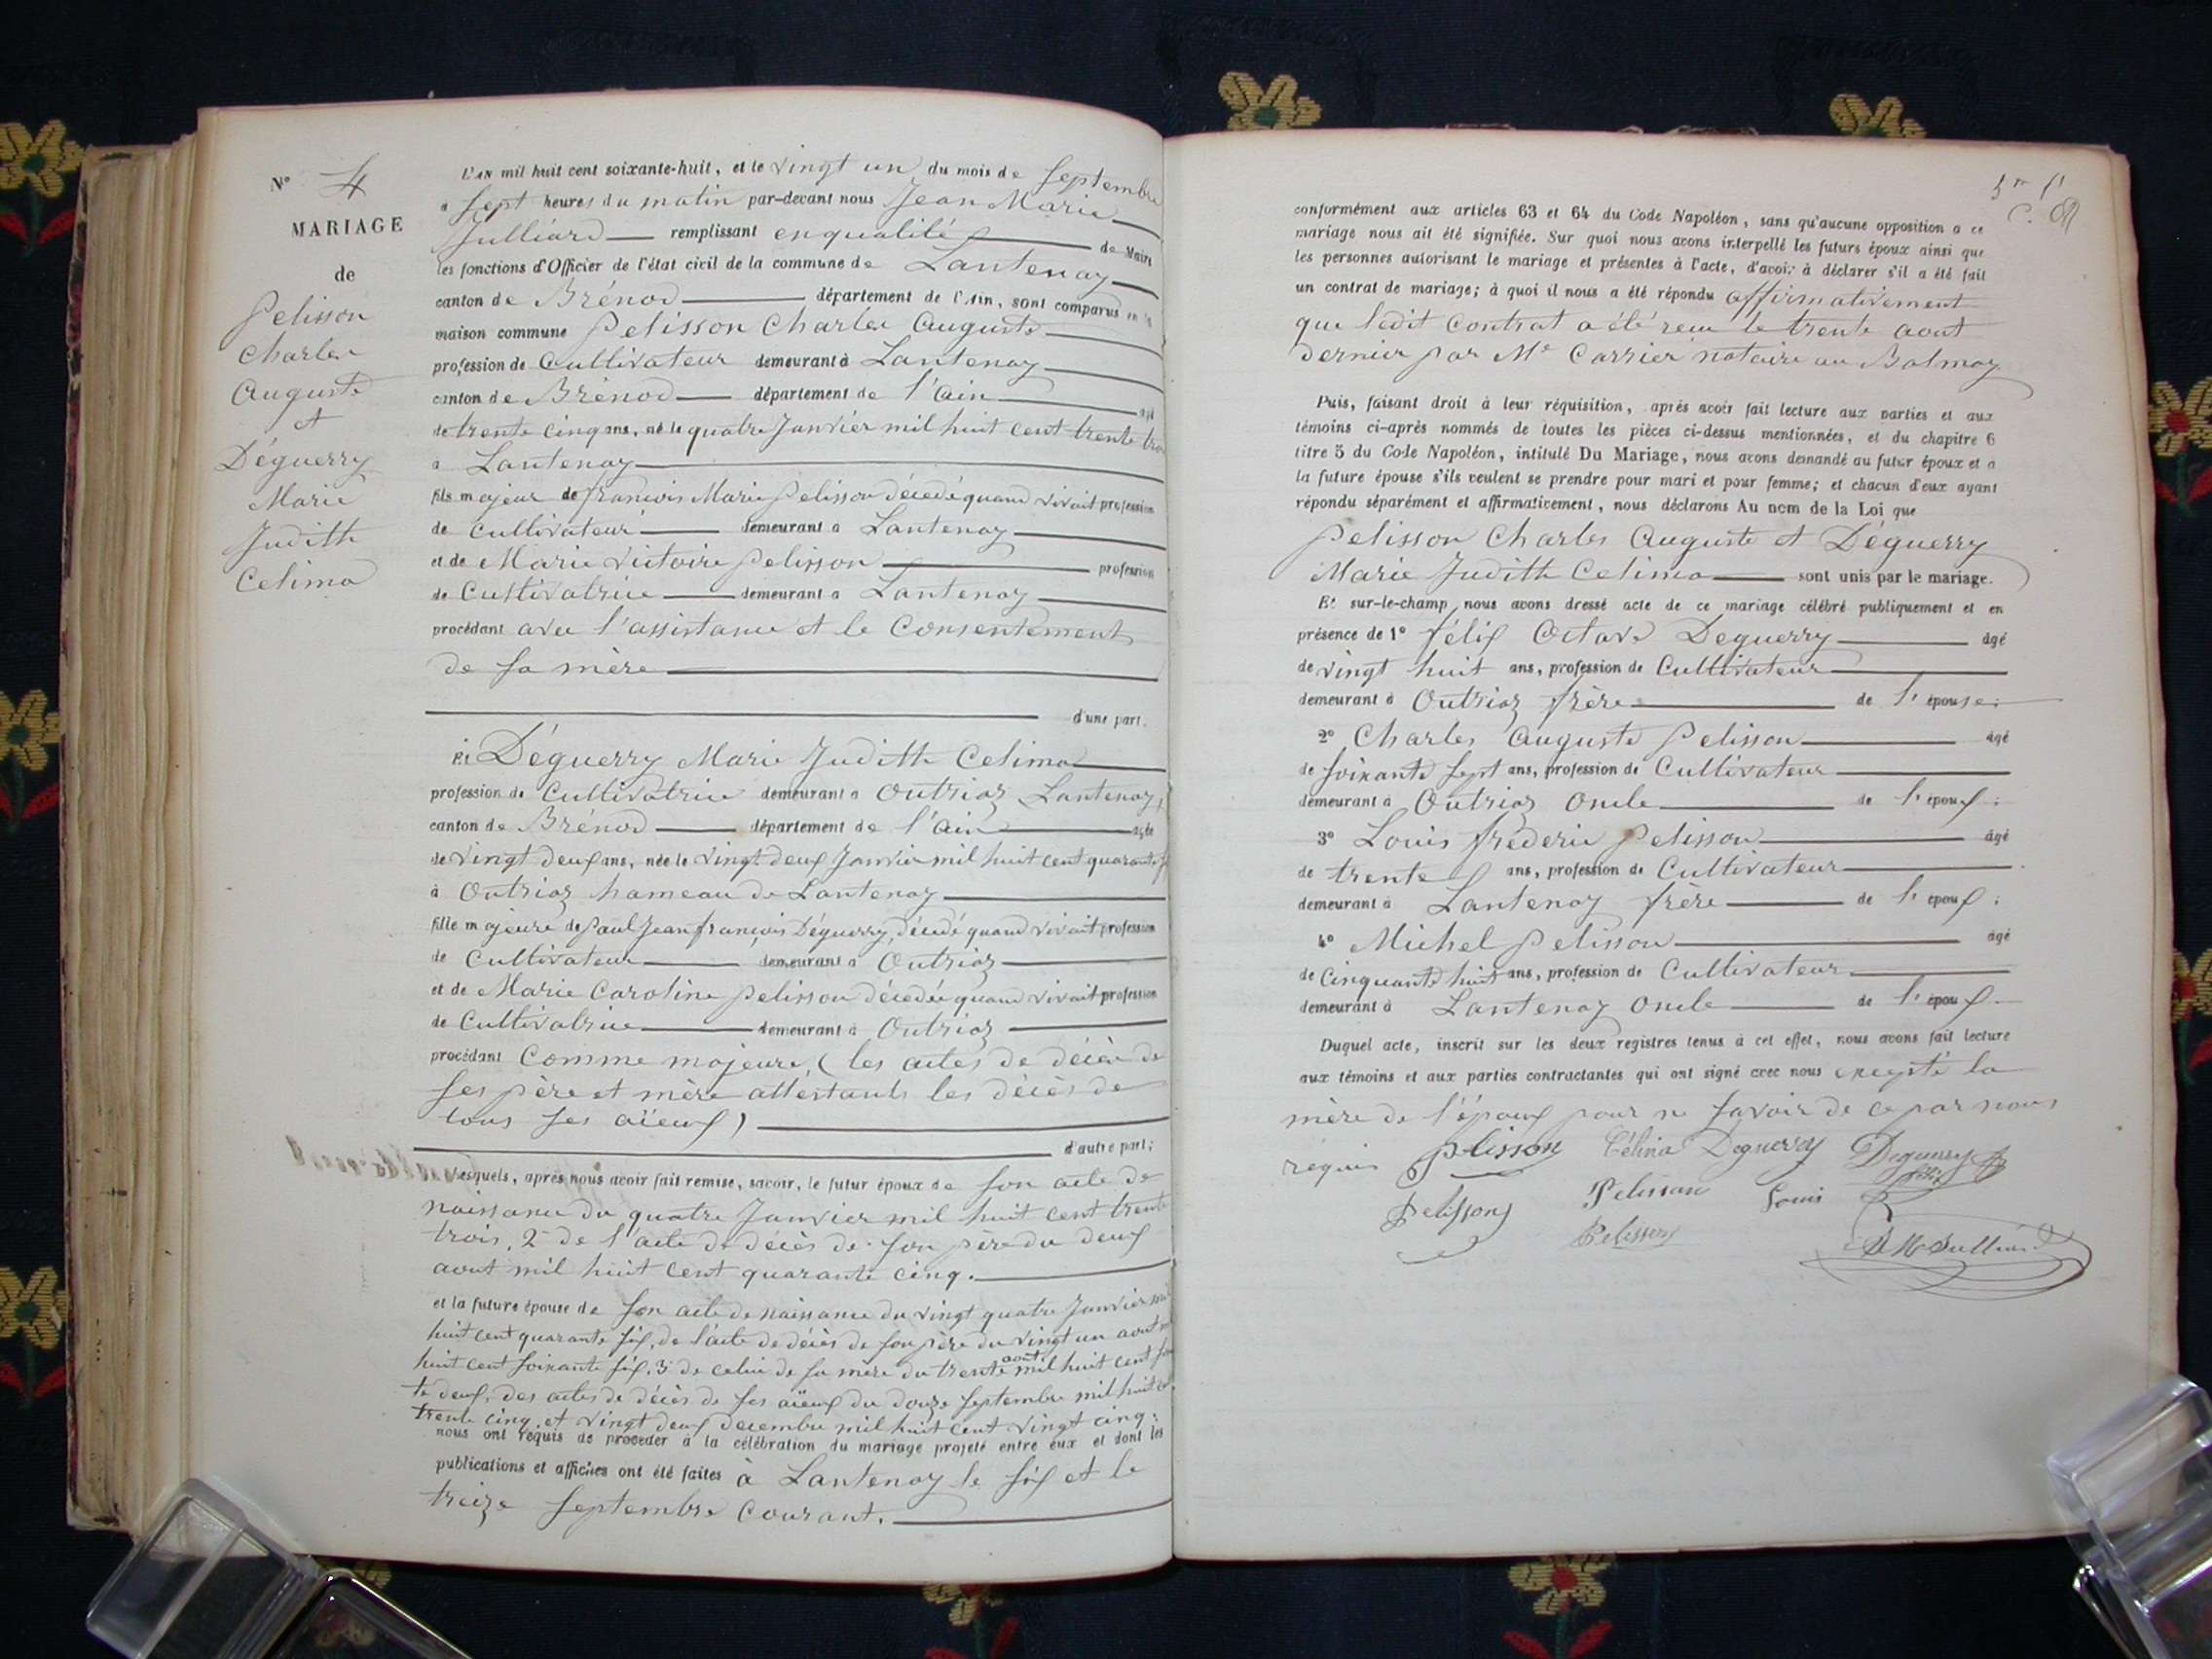 N° 4
MARIAGE
de
Pelisson
Charles
Auguste
et
Déguerry
Marie
Judith
Celima
L'AN mil huit cent soixante-huit, et le vingt un du mois de Septembre
a Sept heures du matin par-devant nous Jean Marie
Julliard remplissant en qualité de Maire
les fonctions d'Officier de l'état civil de la commune de Lantenay
canton de Brénod département de l'Ain, sont comparus en la
maison commune Pelisson Charles Auguste
profession de Cultivateur demeurant à Lantenay
canton de Brénod département de l'Ain agé
de trente cinq ans, né le quatre Janvier mil huit cent trente trois
a Lantenay
fils majeur de francois Marie Pelisson décédé quand vivait profession
de Cultivateur demeurant a Lantenay
et de Marie Victoire Pelisson profession
de Cultivatrice demeurant a Lantenay
procédant avec l'assistance et le Consentement
de sa mère
d'une part.
Et Déguerry Marie Judith Celima
profession de Cultivatrice demeurant a Outriaz Lantenay,
canton de Brénod département de l'Ain agée
de vingt deux ans, née le vingt deux Janvier mil huit cent quarante
à Outriaz hameau de Lantenay
fille majeure de Paul Jean françois Déguerry, décédé quand vivait profession
de Cultivateur demeurant a Outriaz
et de Marie Caroline Pelisson décédée quand vivait profession
de Cultivatrice demeurant à Outriaz
procédant Comme majeure, (les actes de décès de
ses père et mère attestants les décès de
tous ses aïeux)
d'autre part;
Lesquels, après nous avoir fait remise, savoir, le futur époux de son acte de
naissance du quatre Janvier mil huit cent trente
trois, 2° de l'acte de décès de son père du deux
aout mil huit cent quarante cinq.
et la future épouse de son acte de naissance du vingt quatre Janvier mil
huit cent quarante six, de l'acte de décès de son père du vingt un aout mil
huit cent soixante six, 3° de celui de sa mère du trente aout mil huit cent soixan
te deux, des actes de décès de ses aïeux du douze Septembre mil huit cent
trente cinq, et vingt deux decembre mil huit cent vingt cinq.
nous ont requis de procéder à la célébration du mariage projeté entre eux et dont les
publications et affiches ont été faites à Lantenay le six et le
treize Septembre Courant.
conformément aux articles 63 et 64 du Code Napoléon, sans qu'aucune opposition a ce
mariage nous ait été signifiée. Sur quoi nous avons interpellé les futurs époux ainsi que
les personnes autorisant le mariage et présentes à l'acte, d'avoir à déclarer s'il a été fait
un contrat de mariage; à quoi il nous a été répondu affirmativement
que ledit Contrat a été reçu le trente aout
dernier par Me Carrier notaire au Balmay
Puis, faisant droit à leur réquisition, après avoir fait lecture aux parties et aux
témoins ci-après nommés de toutes les pièces ci-dessus mentionnées, et du chapitre 6
titre 5 du Code Napoléon, intitulé Du Mariage, nous avons demandé au futur époux et a
la future épouse s'ils veulent se prendre pour mari et pour femme; et chacun d'eux ayant
répondu séparément et affirmativement, nous déclarons Au nom de la Loi que
Pelisson Charles Auguste et Déguerry
Marie Judith Celima sont unis par le mariage.
Et sur-le-champ nous avons dressé acte de ce mariage célébré publiquement et en
présence de 1° félix Octave Deguerry âgé
de vingt huit ans, profession de Cultivateur
demeurant à Outriaz frère de l'épouse;
2° Charles Auguste Pelisson âgé
de soixante sept ans, profession de Cultivateur
demeurant a Outriaz Oncle de l'époux;
3° Louis frederic Pelisson âgé
de trente ans, profession de Cultivateur
demeurant à Lantenay frère de l'époux;
4° Michel Pelisson âgé
de Cinquante huit ans, profession de Cultivateur
demeurant à Lantenay Oncle de l'époux
Duquel acte, inscrit sur les deux registres tenus à cet effet, nous avons fait lecture
aux témoins et aux parties contractantes qui ont signé avec nous excepté la
mère de l'époux pour ne savoir de ce par nous
requis Pelisson Célina Deguerry Deguerry
félix
Pelisson Pelisson Louis
Pelisson JM Julliard